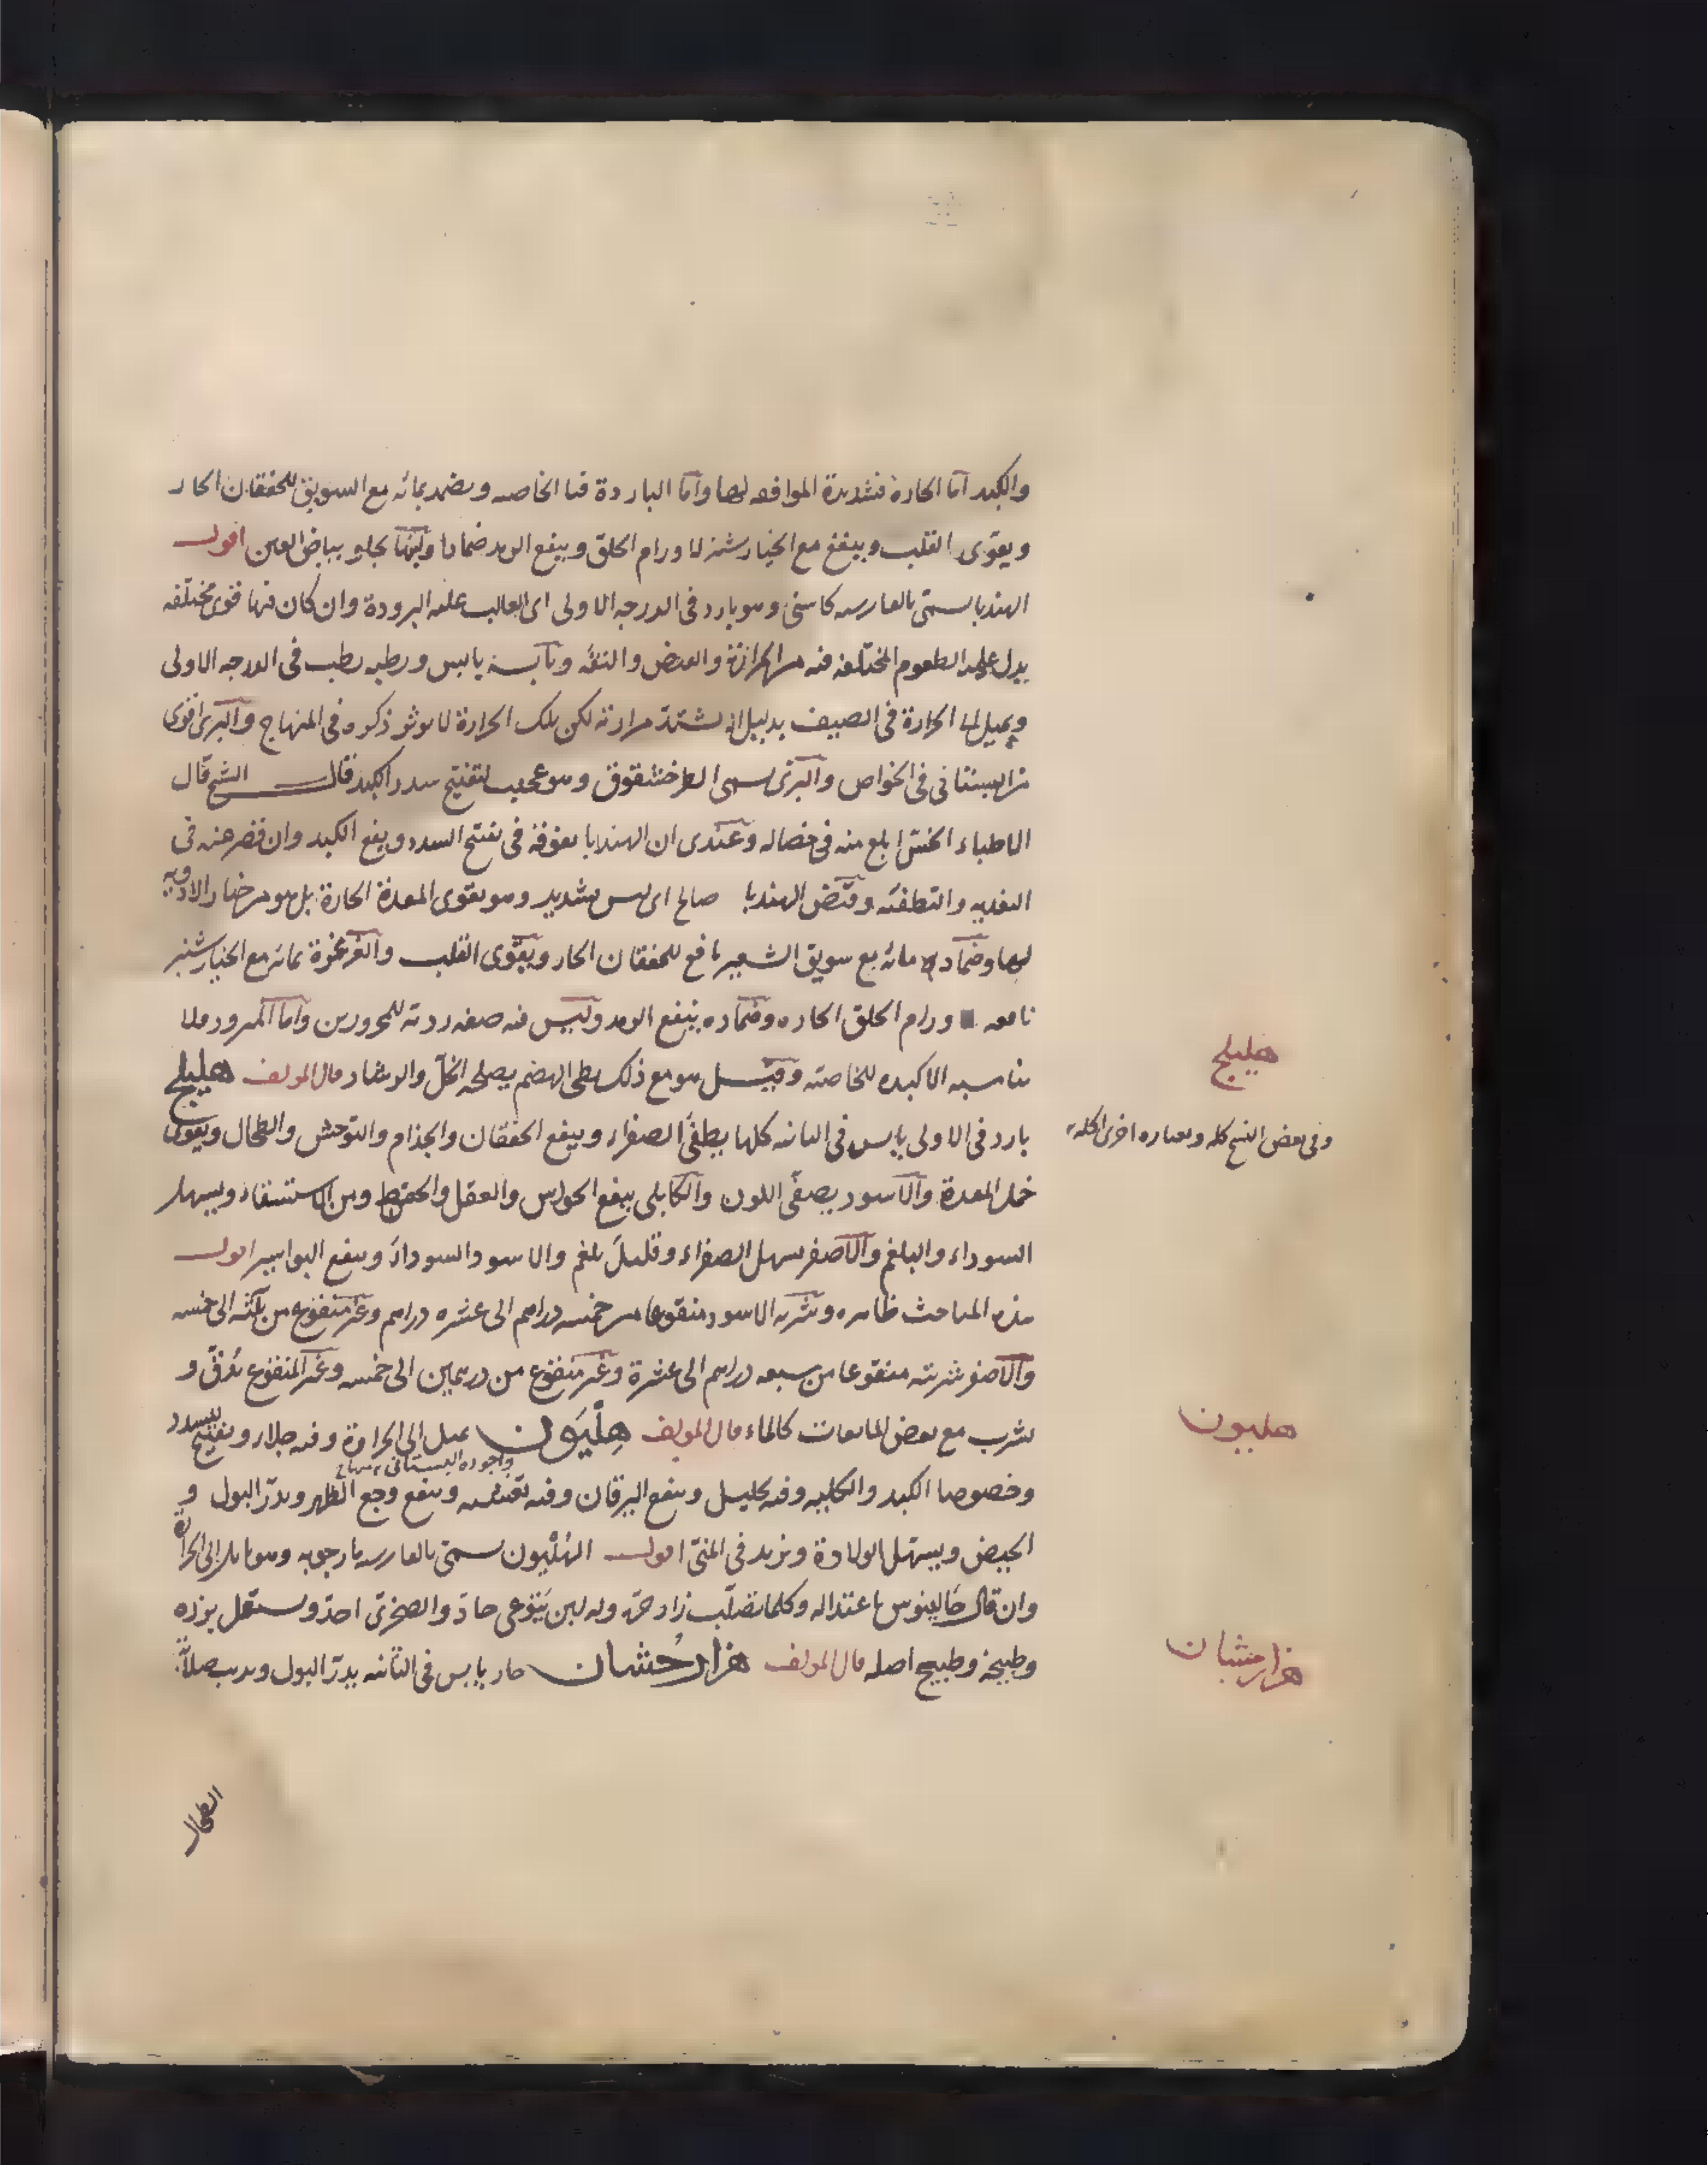 والكبد اما الحارة فشديدة الموافقه لها واما الباردة فبا الخاصه ويضمد بمائه مع السويق للخفقان الحار
ويقوى القلب وينفع مع الخيار شنبر لاورام الحلق وينفع الرمد ضمادا ولبنها يجلو بياض العين اقول
الهندبا سمى بالفارسه كاسنى وهو بارد فى الدرجه الاولى اى الغالب عليه البرودة وان كان فيها قوى مختلفه
يدل عليه الطعوم المختلفه فيه من المرارة والقبض والتفه ويابسه يابس ورطبه رطب فى الدرجه الاولى
ويميل الى الحرارة فى الصيف بدليل انه تشتد مرارته لكن تلك الحرارة لا توثر ذكره فى المنهاج والبرى اقوى
من البستانى فى الخواص والبرى سمى الطرخشقوق وهو عجيب لتفتيح سدد الكبد قال الشيخ قال
الاطباء الخس ابلغ منه فى خصاله وعندى ان الهندبا يفوقه فى تفتح السدد ونفع الكبد وان قصر عنه فى
التغديه والتطفئه وقبض الهندبا صالح اى ليس بشديد وهو يقوى المعدة الحارة بل هو من خيار الادويه
لها وضماده مائه مع سويق الشعير نافع للخفقان الحار ويقوى القلب والغرغرة بمائه مع الخيار شنبر
نافعه ورام الحلق الحاره وضماده ينفع الرمد وليس فيه صفه رديه للمحرورين واما المبرود فلا
يناسبه الا كبده للخاصيه وقيل هو مع ذلك بطى الهضم يصلحه الخل والرشاد قال المولف هليلج
بارد فى الاولى يابس فى الثانيه كلها يطفى الصفراء وينفع الخفقان والجذام والتوحش والطحال ويقوى
خمل المعدة والاسود يصفى اللون والكابلى ينفع الحواس والعقل والحفظ ومن الاستسقاء ويسهل
السوداء والبلغم والاصفر يسهل الصفراء وقليل بلغم والاسود السوداء وينفع البواسير اقول
هذه المباحث ظاهره وشربه الاسود منقوعا من خمسه دراهم الى عشره دراهم وغير منقوع من ثلثه الى خمسه
والاصفر شربته منقوعا من سبعه دراهم الى عشرة وغير منقوع من درهمين الى خمسه وغير المنقوع يدق و
يشرب مع بعض المايعات كالماء قال المولف هليون يميل الى الحرارة وفيه جلاء وتفتيح للسدد
واجوده البستانى منهاج
وخصوصا الكبد والكليه وفيه تحليل وينفع اليرقان وفيه تغذيه وينفع وجع الظهر ويدر البول و
الحيض ويسهل الولادة ويزيد فى المنى اقول الهليون سمى بالفارسه مارجوبه وهو مايل الى الحرارة
وان قال جالينوس باعتداله وكلما تصلب زاد حره وله لبن يتوعى حاد والصخرى احد ويستعمل بزره
وطبيخه وطبيخ اصله قال المولف هزارجشان حار يابس فى الثانيه يدر البول ويذيب صلابة
الطحال
هليلج
وفى بعض النسخ كله وبعباره اخرى اكله
هليون
هزارجشان